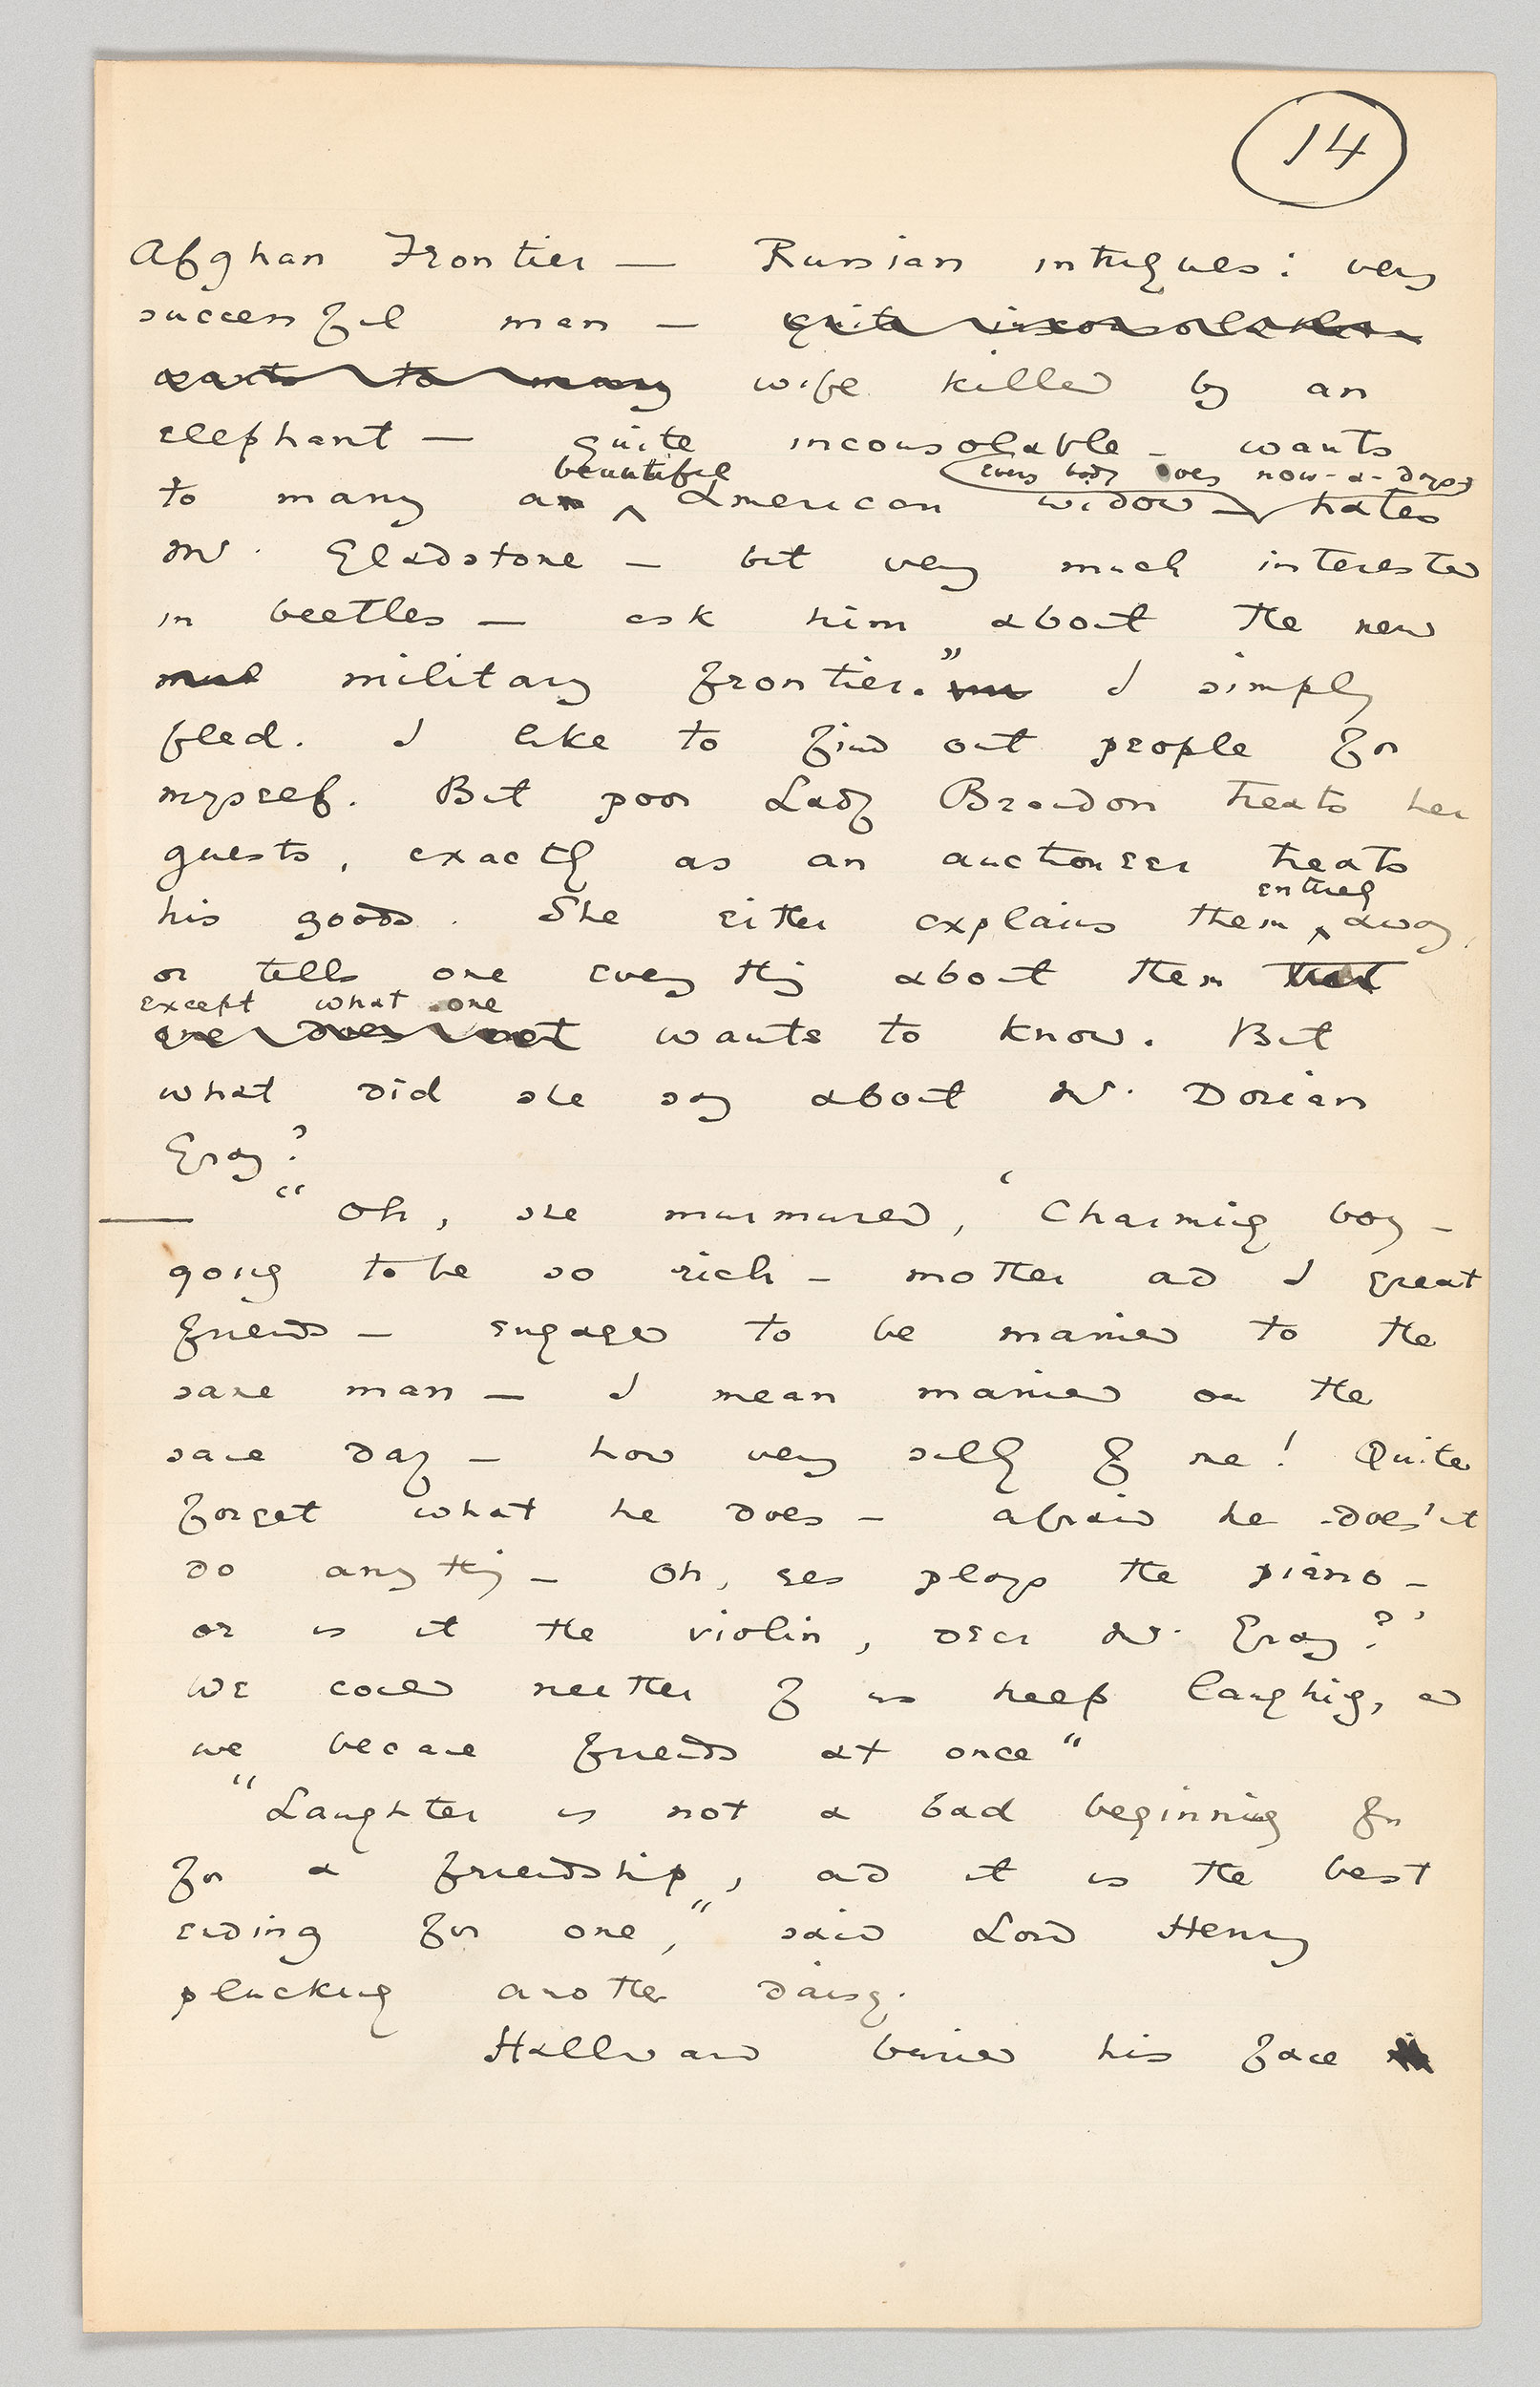 14
Afghan Frontier — Russian intrigues: very
successful man — quite inconsolable
wants to marry wife killed by an
elephant — quite inconsolable — wants
beautiful every body does now-a-days
to marry an ^ American widow — hates
Mr. Gladstone — but very much interested
in beetles — ask him about the new
military frontier." I simply
fled. I like to find out people for
myself. But poor Lady Brandon treats her
guests, exactly as an auctioneer treats
entirely
his goods. She either explains them ^ away,
or tells one every thing about them that
except what one
one does not wants to know. But
what did she say about Mr. Dorian
Gray?
— "Oh, she murmured, 'Charming boy —
going to be so rich — mother and I great
friends — engaged to be married to the
same man — I mean married on the
same day — how very silly of me! Quite
forget what he does — afraid he does'nt
do any thing — Oh, yes plays the piano —
or is it the violin, dear Mr. Gray?'
We could neither of us help laughing, and
we became friends at once"
"Laughter is not a bad beginning for
for a friendship, and it is the best
ending for one," said Lord Henry
plucking another daisy.
Hallward buried his face